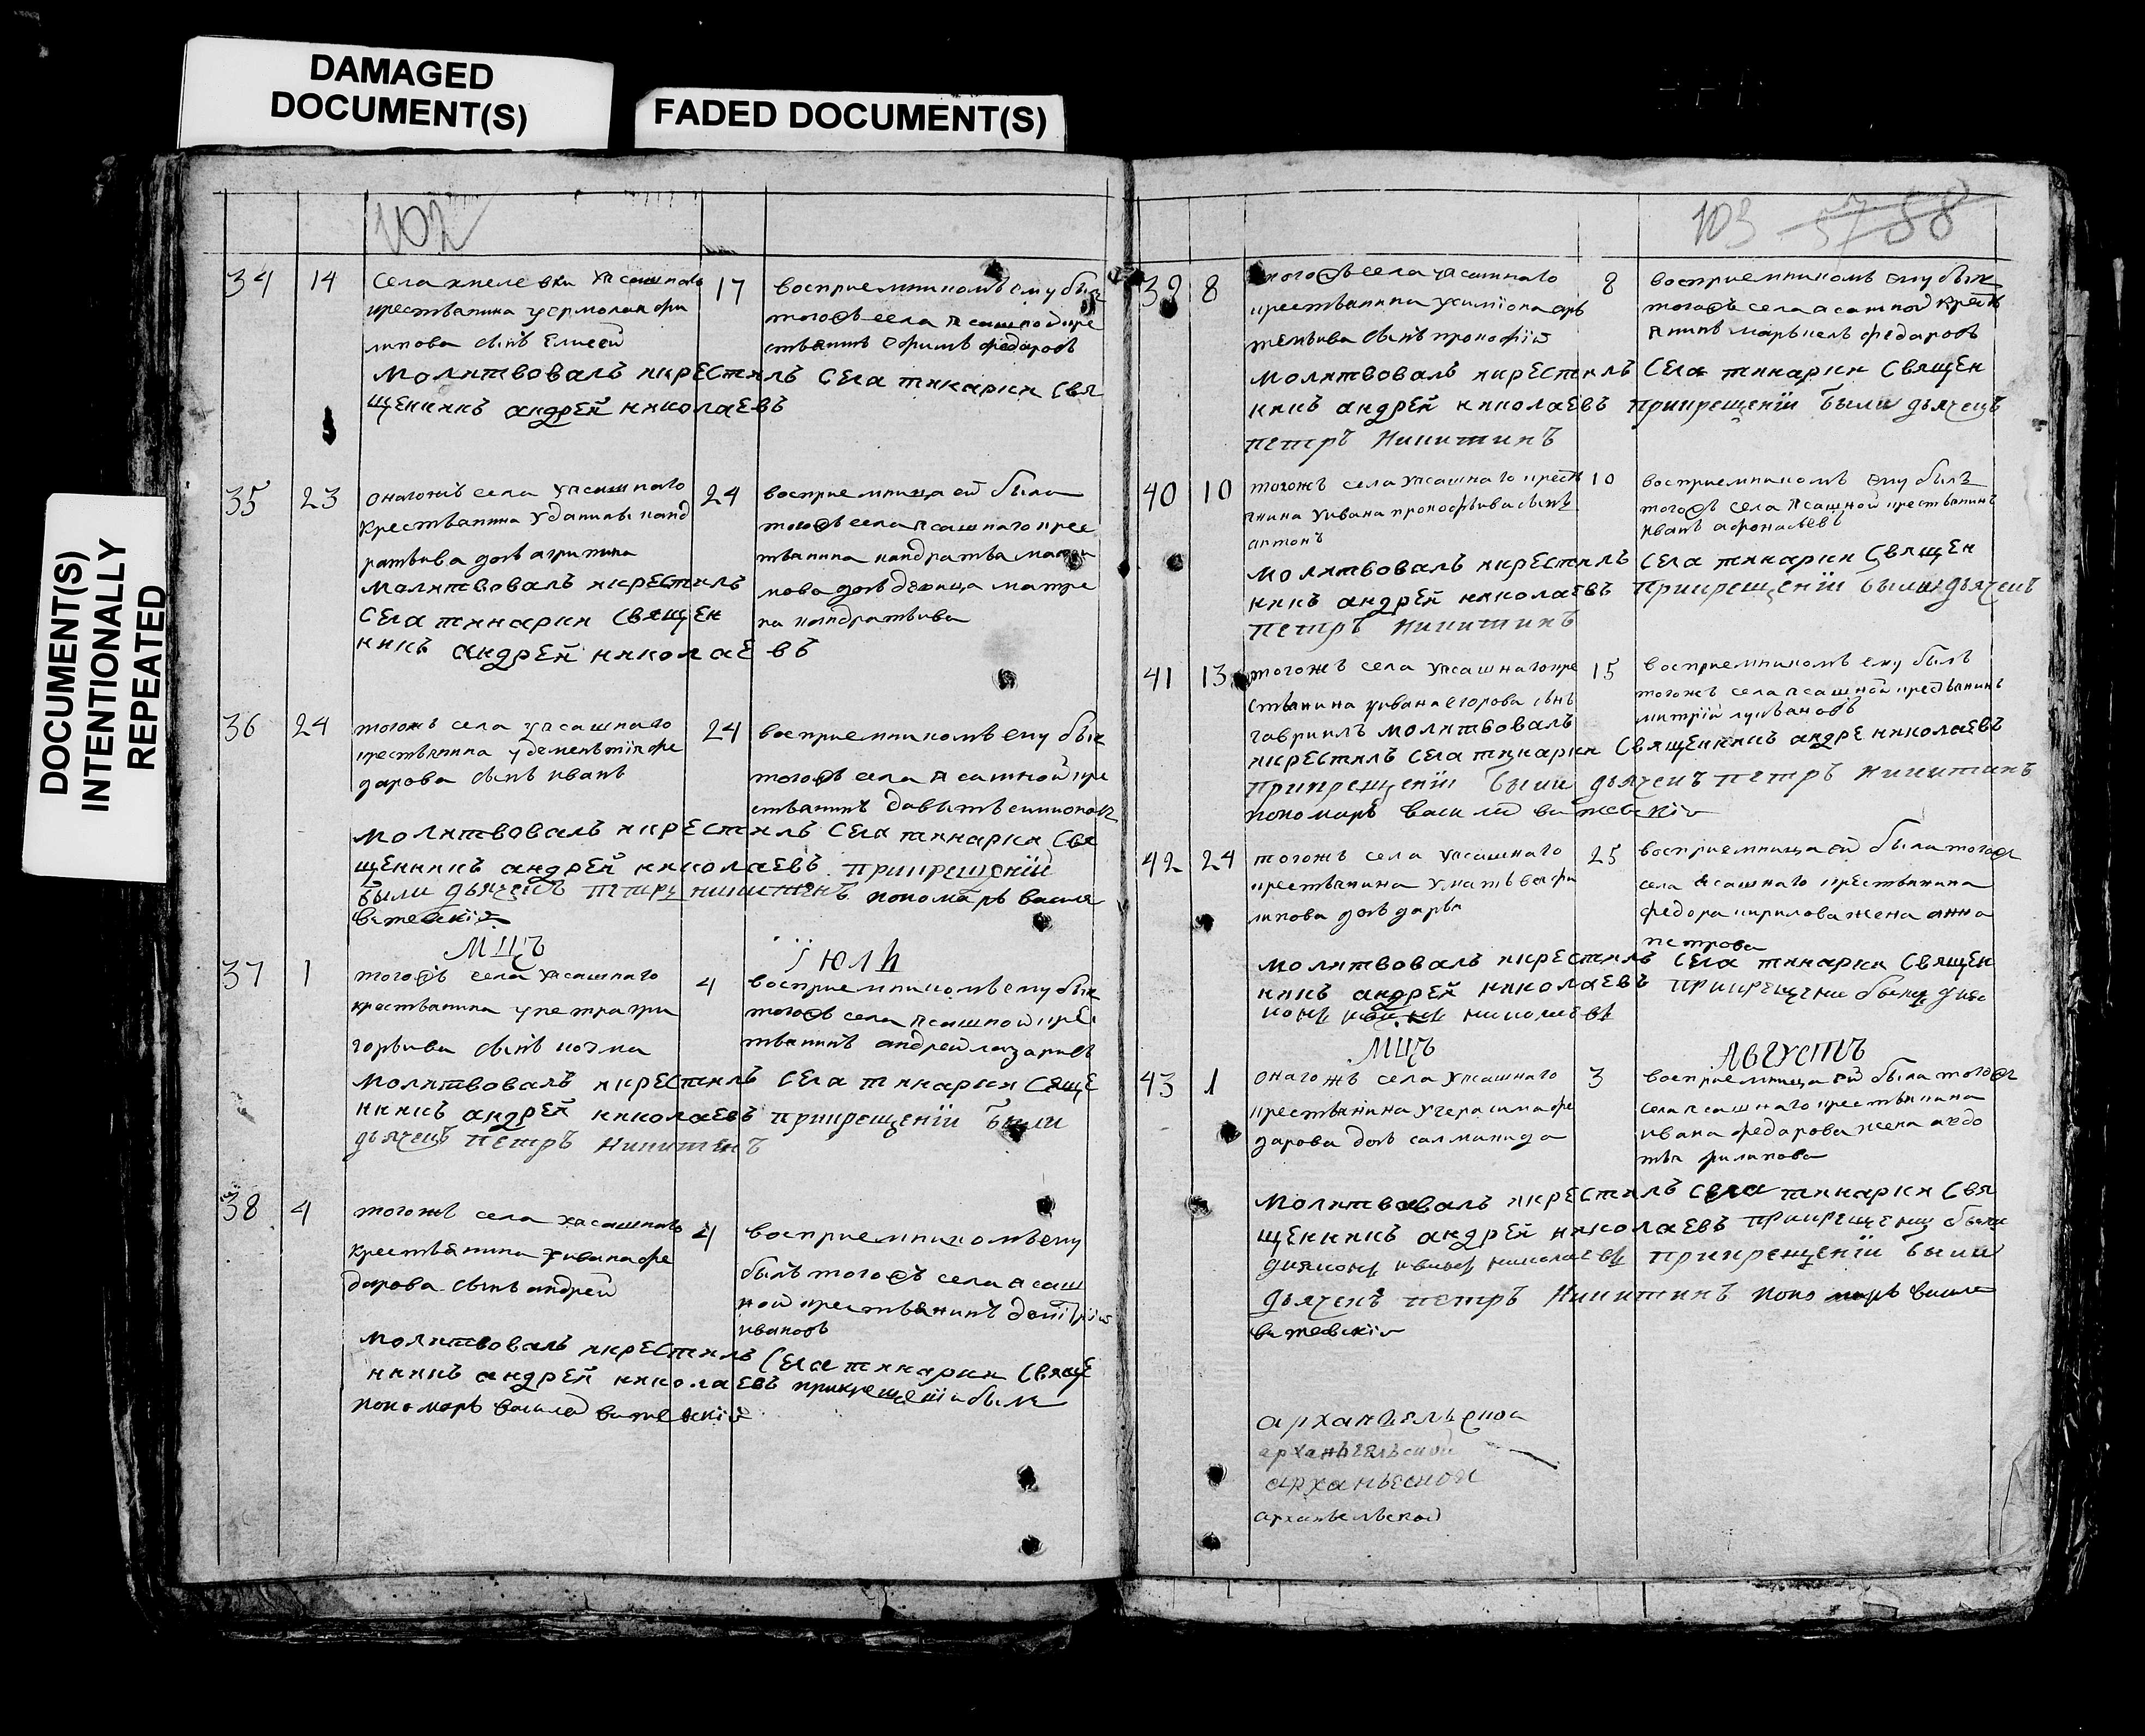 DAMAGED
DOCUMENT(S)
FADED DOCUMENT(S)
DOCUMENT(S)
INTENTIONALLY
REPEATED
102
34 14
села хмелевки ясашнаго
крестьянина уермолая фи
липова сынъ Елисей
17
восприемникомъ ему был
тогожъ села ясашной кре
стьянинъ ефимъ федаровъ
молитвовалъ икрестилъ села тинарки свя
щенникъ андрей николаевъ
35 23
онагожъ села уясашнаго
крестьянина уданилы канд
ратьива дочь агрипина
24
восприемница ей была
тогожъ села ясашнаго крес
тьянина кандратья
дочь девица матре
на кандратьива
молитвовалъ икрестилъ
села тинарки священ
никъ андрей николаевъ
36 24
тогожъ села уясашнаго
крестьянина удементия фе
дарова сынъ иванъ
24
восприемникомъ ему был
тогожъ села ясашной кре
стьянинъ давытъ симионов
молитвовалъ икрестилъ села тинарки свя
щенникъ андрей николаевъ прикрещении
были дьячекъ петръ никитинъ пономарь василей
витевский
мцъ июль
37 1
тогожъ села уясашнаго
крестьянина упетра гри
горьива сынъ козма
4
восприемникомъ ему был
тогожъ села ясашной кре
тьянинъ андрей лазаривъ
молитвовалъ икрестилъ села тинарки свяще
никъ андрей николаевъ прикрещении были
дьячекъ петръ никитинъ
38 4
тогожъ села уясашнаго
крестьянина уивана фе
дарова сынъ андрей
4
восприемникомъ ему
былъ тогожъ села ясаш
ной крестьянинъ
ивановъ
молитвовалъ икрестилъ села тинарки свяще
никъ андрей николаевъ прикрещении были
пономарь василей витевский
103 57 88
39 8
тогожъ села уясашнаго
крестьянина усимиона арь
темьива сынъ прокофий
8
восприемникомъ ему был
тогожъ села ясашной крестья
янинъ маркелъ федаровъ
молитвовалъ икрестилъ села тинарки священ
никъ андрей николаевъ прикрещении были дьячекъ
петръ никитинъ
40 10
тогожъ села уясашнаго кресть
янина уивана прокофьива сынъ
антонъ
10
восприемникомъ ему былъ
тогожъ села ясашной крестьянинъ
иванъ афонасьевъ
молитвовалъ икрестилъ села тинарки священ
никъ андрей николаевъ прикрещении были дьячекъ
петръ никитинъ
41 13
тогожъ села уясашнаго кре
стьянина уивана егорова сынъ
гавриилъ молитвовалъ
15
восприемникомъ ему былъ
тогожъ села ясашной крестьянинъ
митрий лукьановъ
икрестилъ села тинарки священникъ андре николаевъ
прикрещении были дьячекъ петръ никитинъ
пономарь василей витевский
42 24
тогожъ села уясашнаго
крестьянина уматьвея фи
липова дочь дарья
25
восприемница ей была тогож
села ясашнаго крестьянина
федора кирилова жена анна
петрова
молитвовалъ икрестилъ села тинарки священ
никъ андрей николаевъ прикрещени были дья
конъ иванъ николаевъ
мцъ августъ
43 1
онагожъ села уясашнаго
крестьянина угерасима фе
дарова дочь саламанида
3
восприемница ей была тогож
села ясашнаго крестьянина
ивана федарова жена авдо
тья филипова
молитвовалъ икрестилъ села тинарки свя
щенникъ андрей николаевъ прикрещени были
дияконъ иванъ николаевъ прикрещении были
дьячекъ петръ никитинъ пономарь василе
витевский
архангельской
архангельской
арханьской
арханьельской